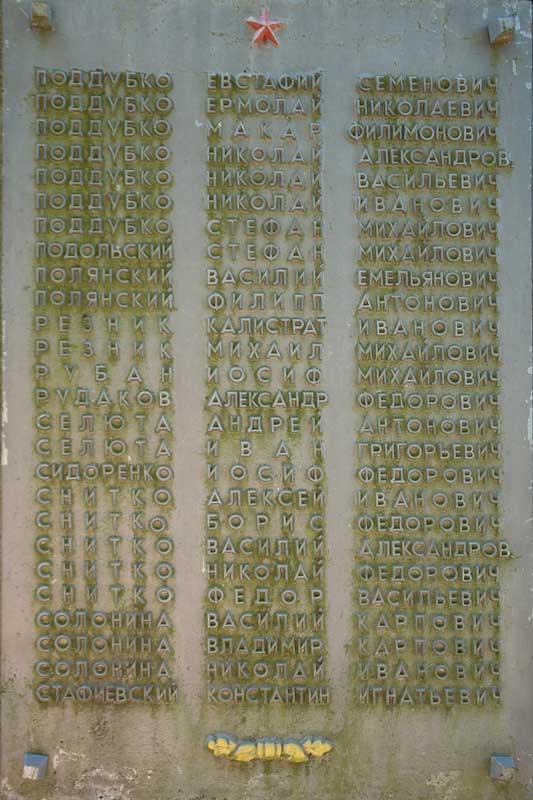 ПОДДУБКО ЕВСТАФИЙ СЕМЕНОВИЧ
ПОДДУБКО ЕРМОЛАЙ НИКОЛАЕВИЧ
ПОДДУБКО МАКАР ФИЛИМОНОВИЧ
ПОДДУБКО НИКОЛАЙ АЛЕКСАНДРОВ.
ПОДДУБКО НИКОЛАЙ ВАСИЛЬЕВИЧ
ПОДДУБКО НИКОЛАЙ ИВАНОВИЧ
ПОДДУБКО СТЕФАН МИХАЙЛОВИЧ
ПОДОЛЬСКИЙ СТЕФАН МИХАЙЛОВИЧ
ПОЛЯНСКИЙ ВАСИЛИЙ ЕМЕЛЬЯНОВИЧ
ПОЛЯНСКИЙ ФИЛИПП АНТОНОВИЧ
РЕЗНИК КАЛИСТРАТ ИВАНОВИЧ
РЕЗНИК МИХАИЛ МИХАЙЛОВИЧ
РУБАН ИОСИФ МИХАЙЛОВИЧ
РУДАКОВ АЛЕКСАНДР ФЕДОРОВИЧ
СЕЛЮТА АНДРЕЙ АНТОНОВИЧ
СЕЛЮТА ИВАН ГРИГОРЬЕВИЧ
СИДОРЕНКО ИОСИФ ФЕДОРОВИЧ
СНИТКО АЛЕКСЕЙ ИВАНОВИЧ
СНИТКО БОРИС ФЕДОРОВИЧ
СНИТКО ВАСИЛИЙ АЛЕКСАНДРОВ.
СНИТКО НИКОЛАЙ ФЕДОРОВИЧ
СНИТКО ФЕДОР ВАСИЛЬЕВИЧ
СОЛОНИНА ВАСИЛИЙ КАРПОВИЧ
СОЛОНИНА ВЛАДИМИР КАРПОВИЧ
СОЛОНИНА НИКОЛАЙ ИВАНОВИЧ
СТАФИЕВСКИЙ КОНСТАНТИН ИГНАТЬЕВИЧ